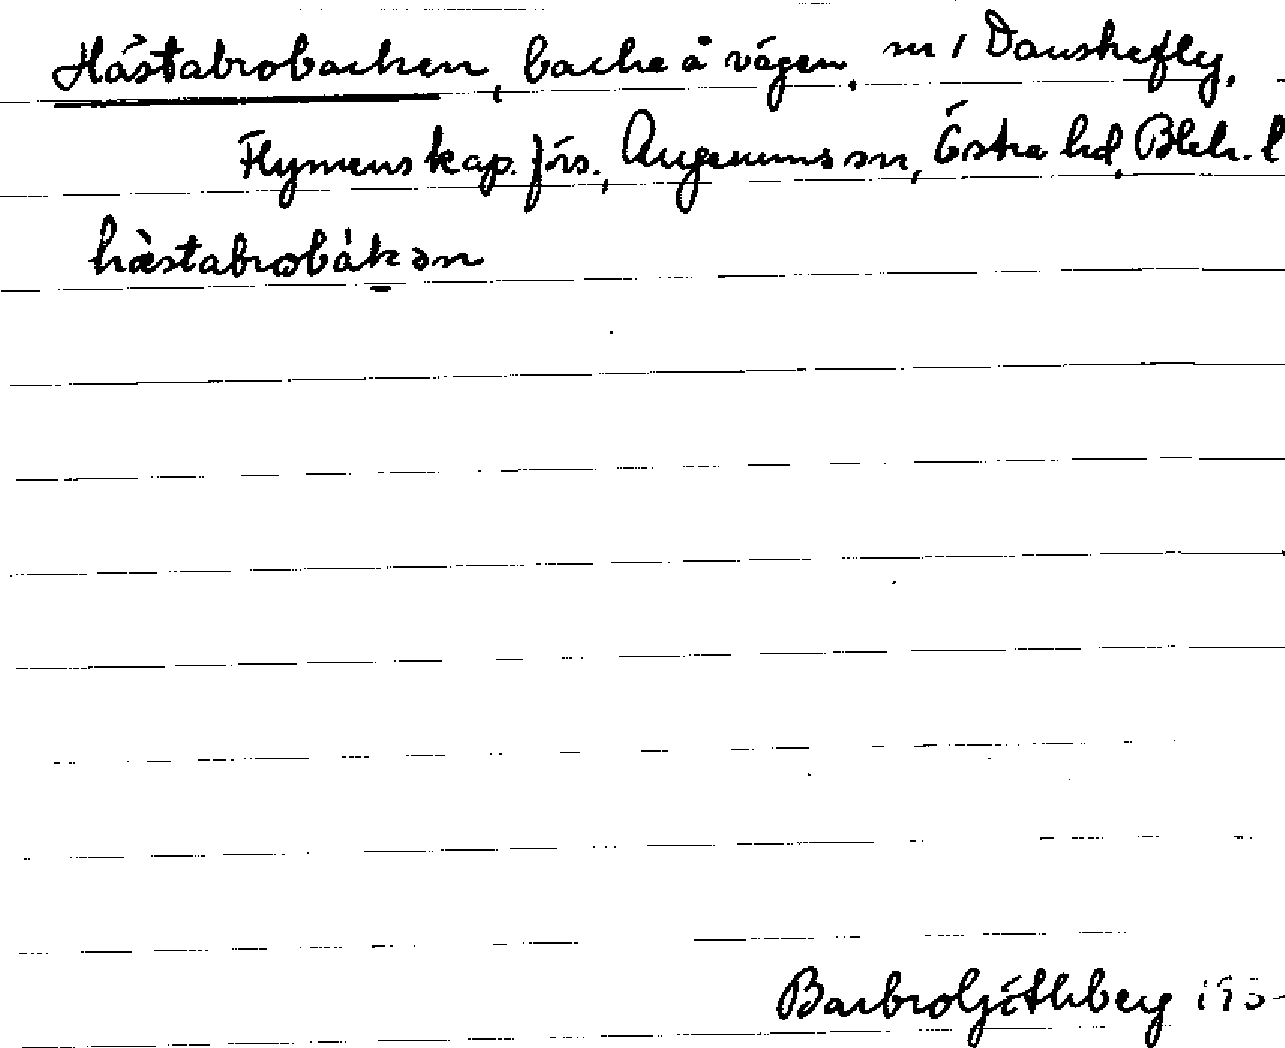 Hästabrobacken, backe å vägen. nr 1 Danskefly,
Flymens kap. förs., Augerums sn, Östra hd, Blek. l
hæstabrobák ən
Barbro Göthberg 195